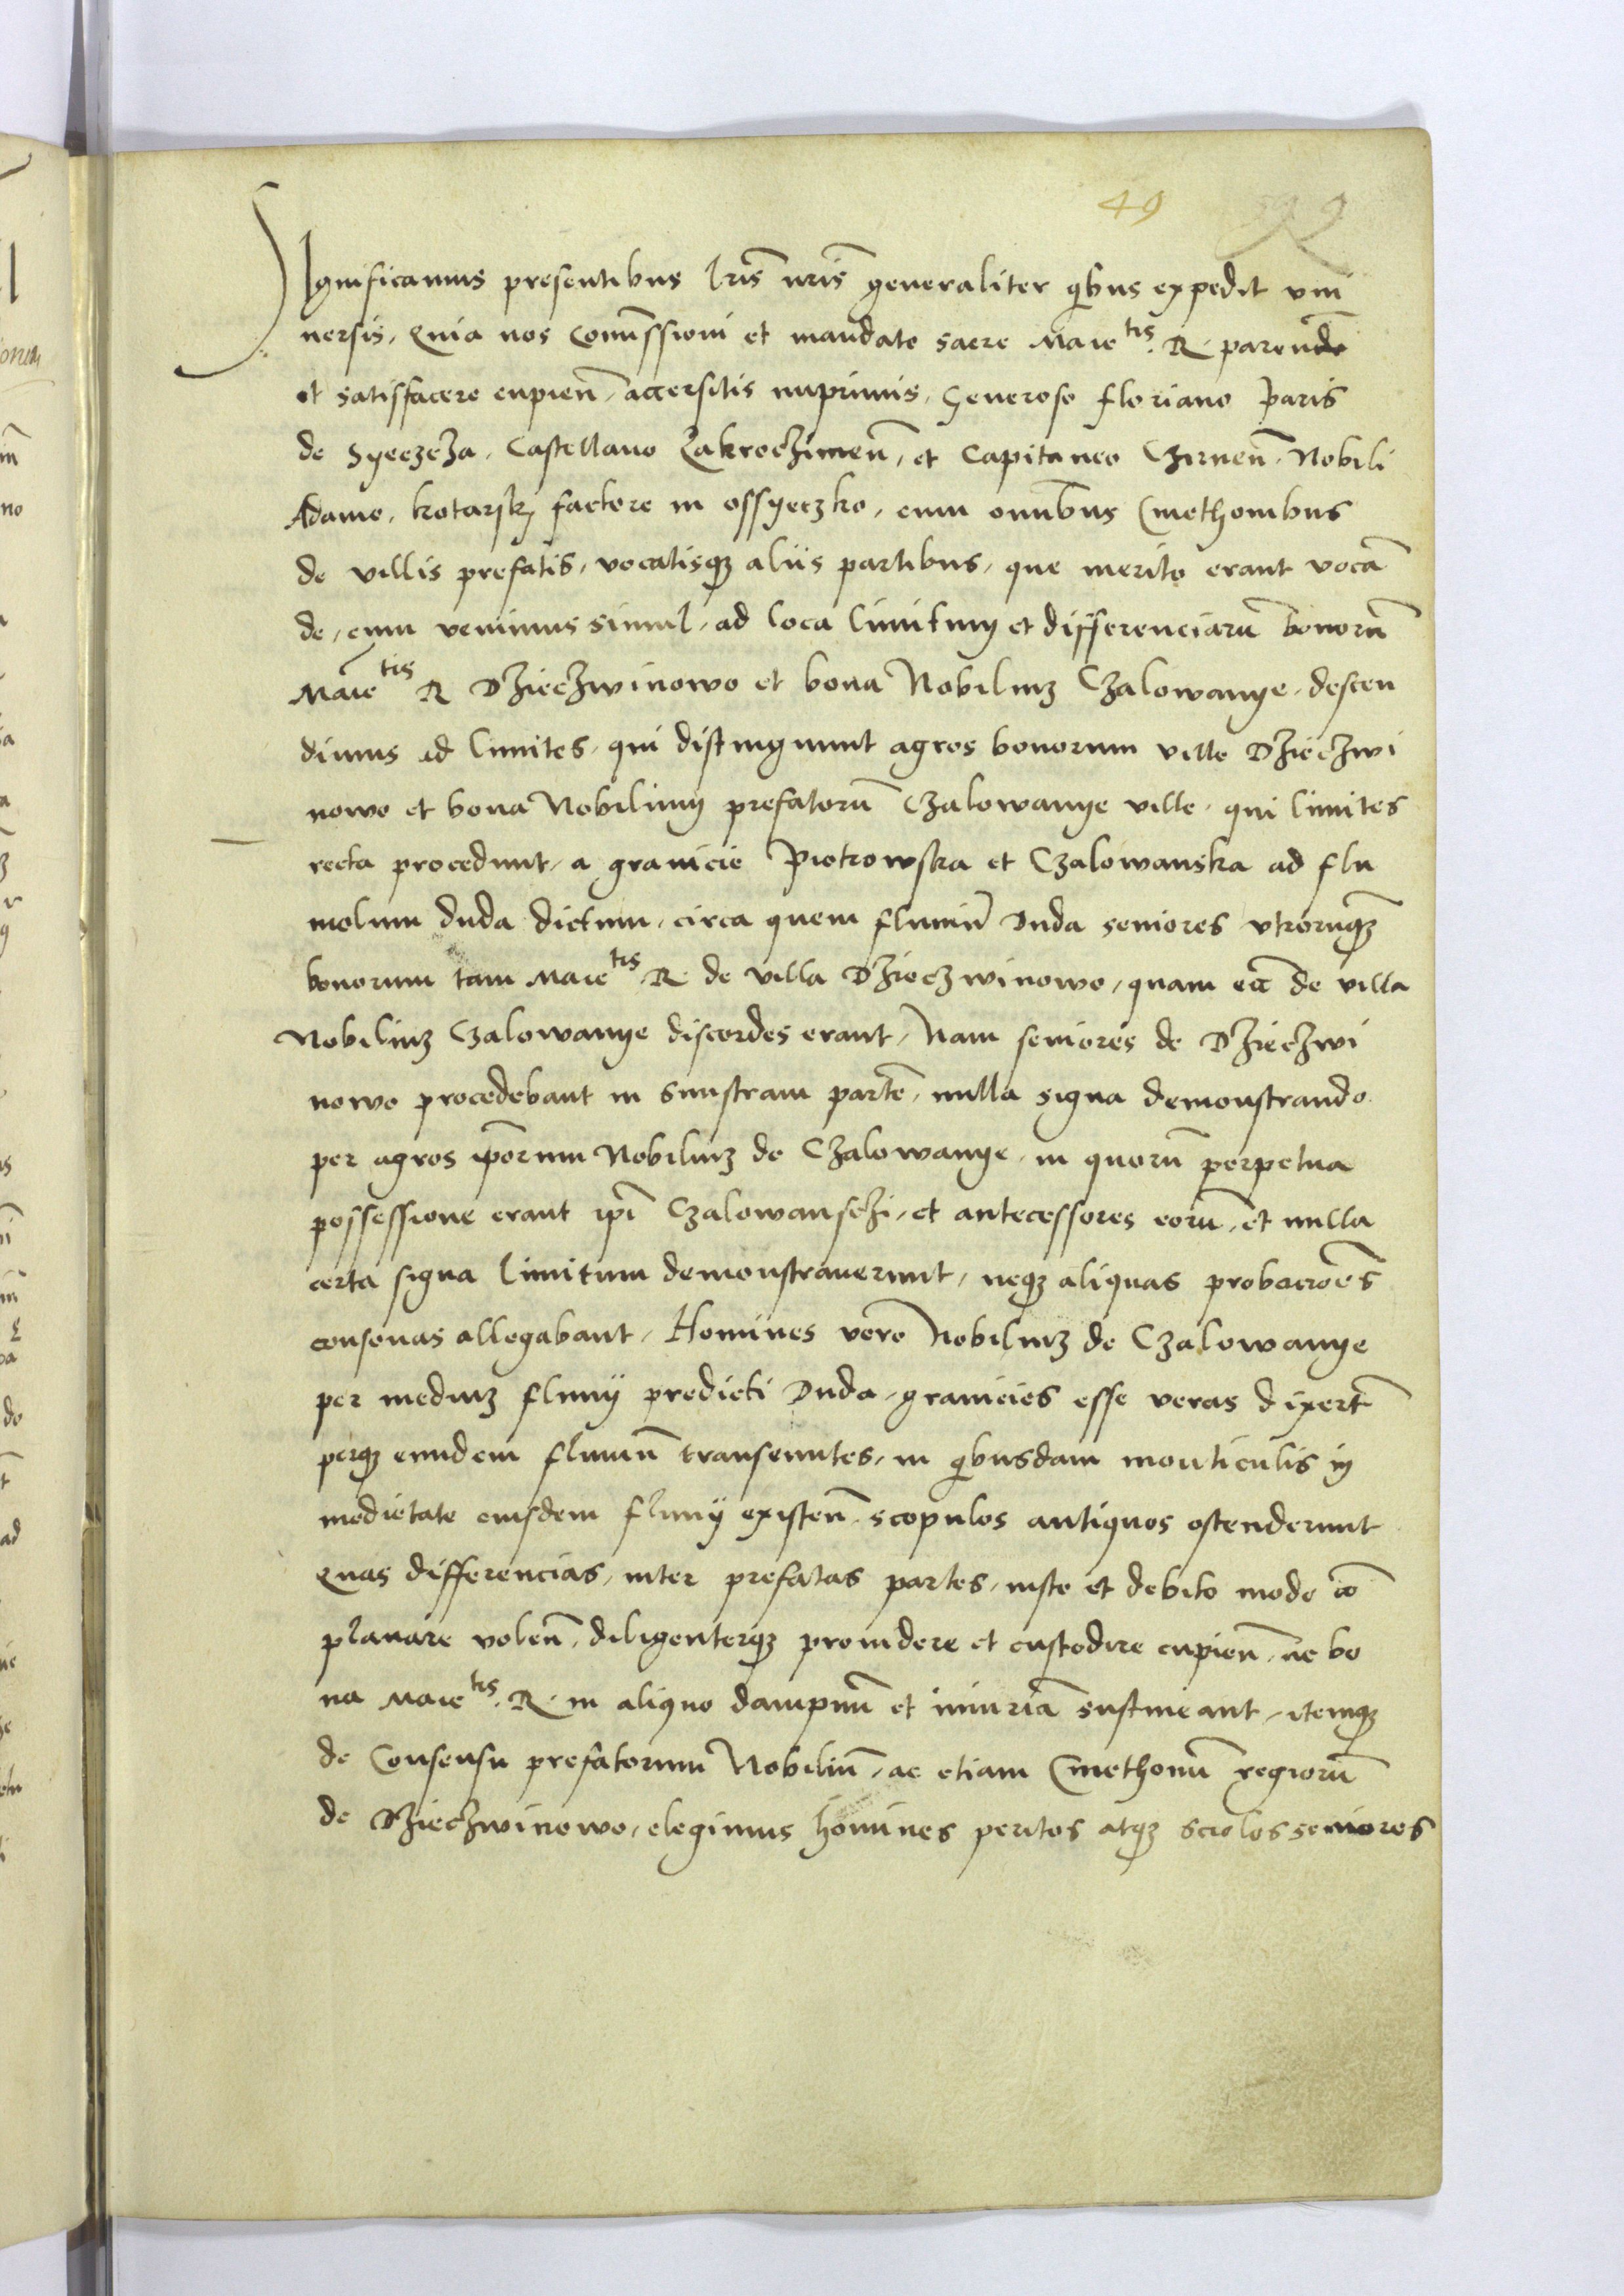 49
Significamus presentibus lr̃is nr̃is generaliter qibus expedit vni
uersis, Quia nos Comissioni et mandato sacre Maie tis. R. parendo
et satisfacere cupien̄, accersitis inprimis, Generoso floriano Paris
de Syeczcza, Castellano Zakroczimen̄, et Capitaneo Czirnen̄, Nobili
Adamo, kotarsky factore in ossyeczko, cum omībus Cmethonibus
de villis prefatis, vocatisq3 aliis partibus, que merito erant vocā
de, cum venimus simul, ad loca limitum et differenciarū bonorū
Maie tis R Dzieczwinowo et bona Nobiliuz Czalowanye, descen
dimus ad limites, qui distingunnt agros bonorum ville Dzieczwi
nowo et bona Nobilium prefatorū Czalowanye ville, qui limites
recta procedunt, a granicie Piotrowska et Czalowanska ad flu
molum duda dictum, circa quem fluuiū Duda seniores vtrorumq3
bonorum tam Maie tis R de villa Dzieczwinowo, quam ecī de villa
Nobiliuz Czalowanye discordes erant, Nam seniores de Dzieczwi
nowo procedebant in sinistram partē, nulla signa demonstrando
per agros ip̄orum Nobiliuz de Czalowanye, in quorū perpetua
possessione erant ip̄i Czalowansczi, et antecessores eorū, et nulla
certa signa limitum demonstrauerunt, neq3 aliquas probacioēs
consonas allegabant, Homines vero Nobiliuz de Czalowanye
per mediuz fluuii predicti Duda, granicies esse veras dixerūt
perq3 eundem fluuiū transeuntes, in qibusdam monticulis in
medietate eiusdem fluuii existen̄ scopulos antiquos ostenderunt
Quas differencias, inter prefatas partes, iuste et debito modo cō
planare volen̄, diligenterq3 prouidere et custodire cupien̄, ne bo
na Maie tis. R. in aliquo dampnū et iniuriā sustineant, itemq3
de Consensu prefatorum Nobiliū, ac etiam Cmethonū regiorū
de Dzieczwinowo, elegimus homines peritos atq3 sciolos seniores